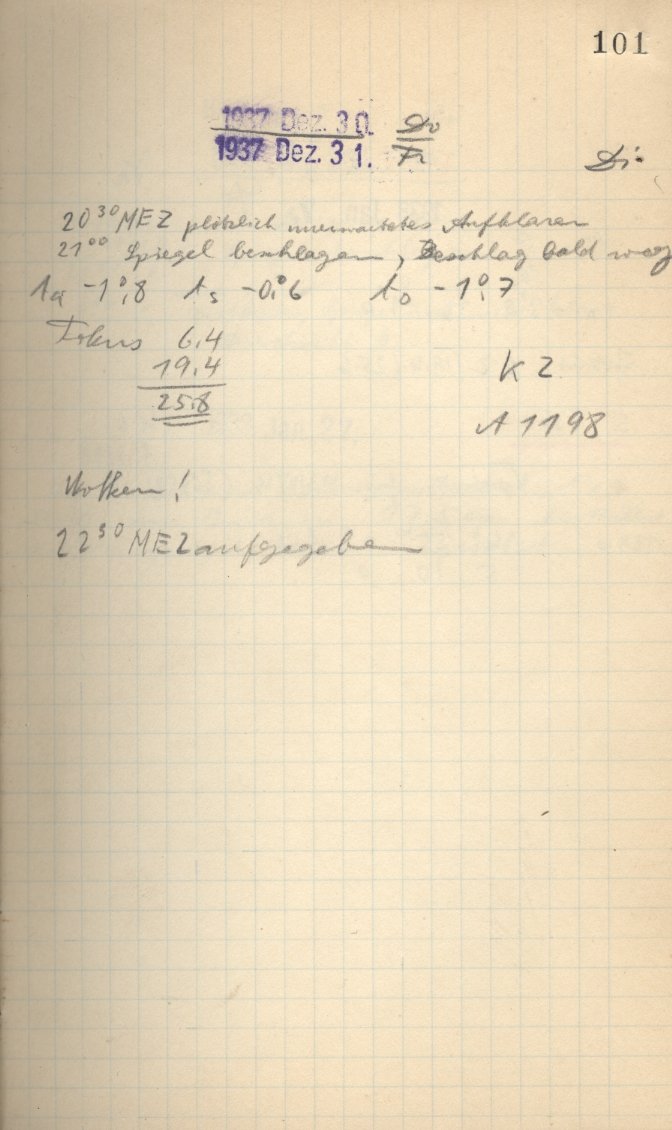 101
1937 Dez. 30. Do
1937 Dez. 31. Fr
Di.
20³⁰ MEZ plötzlich unerwartetes Aufklaren
21⁰⁰ Spiegel beschlagen, Beschlag bald weg
t_a -1°,8 t_s -0,°6 t_o -1°,7
Fokus 6.4
19.4
25.8
K 2
A 1198
Wolken!
22³⁰ MEZ aufgegeben